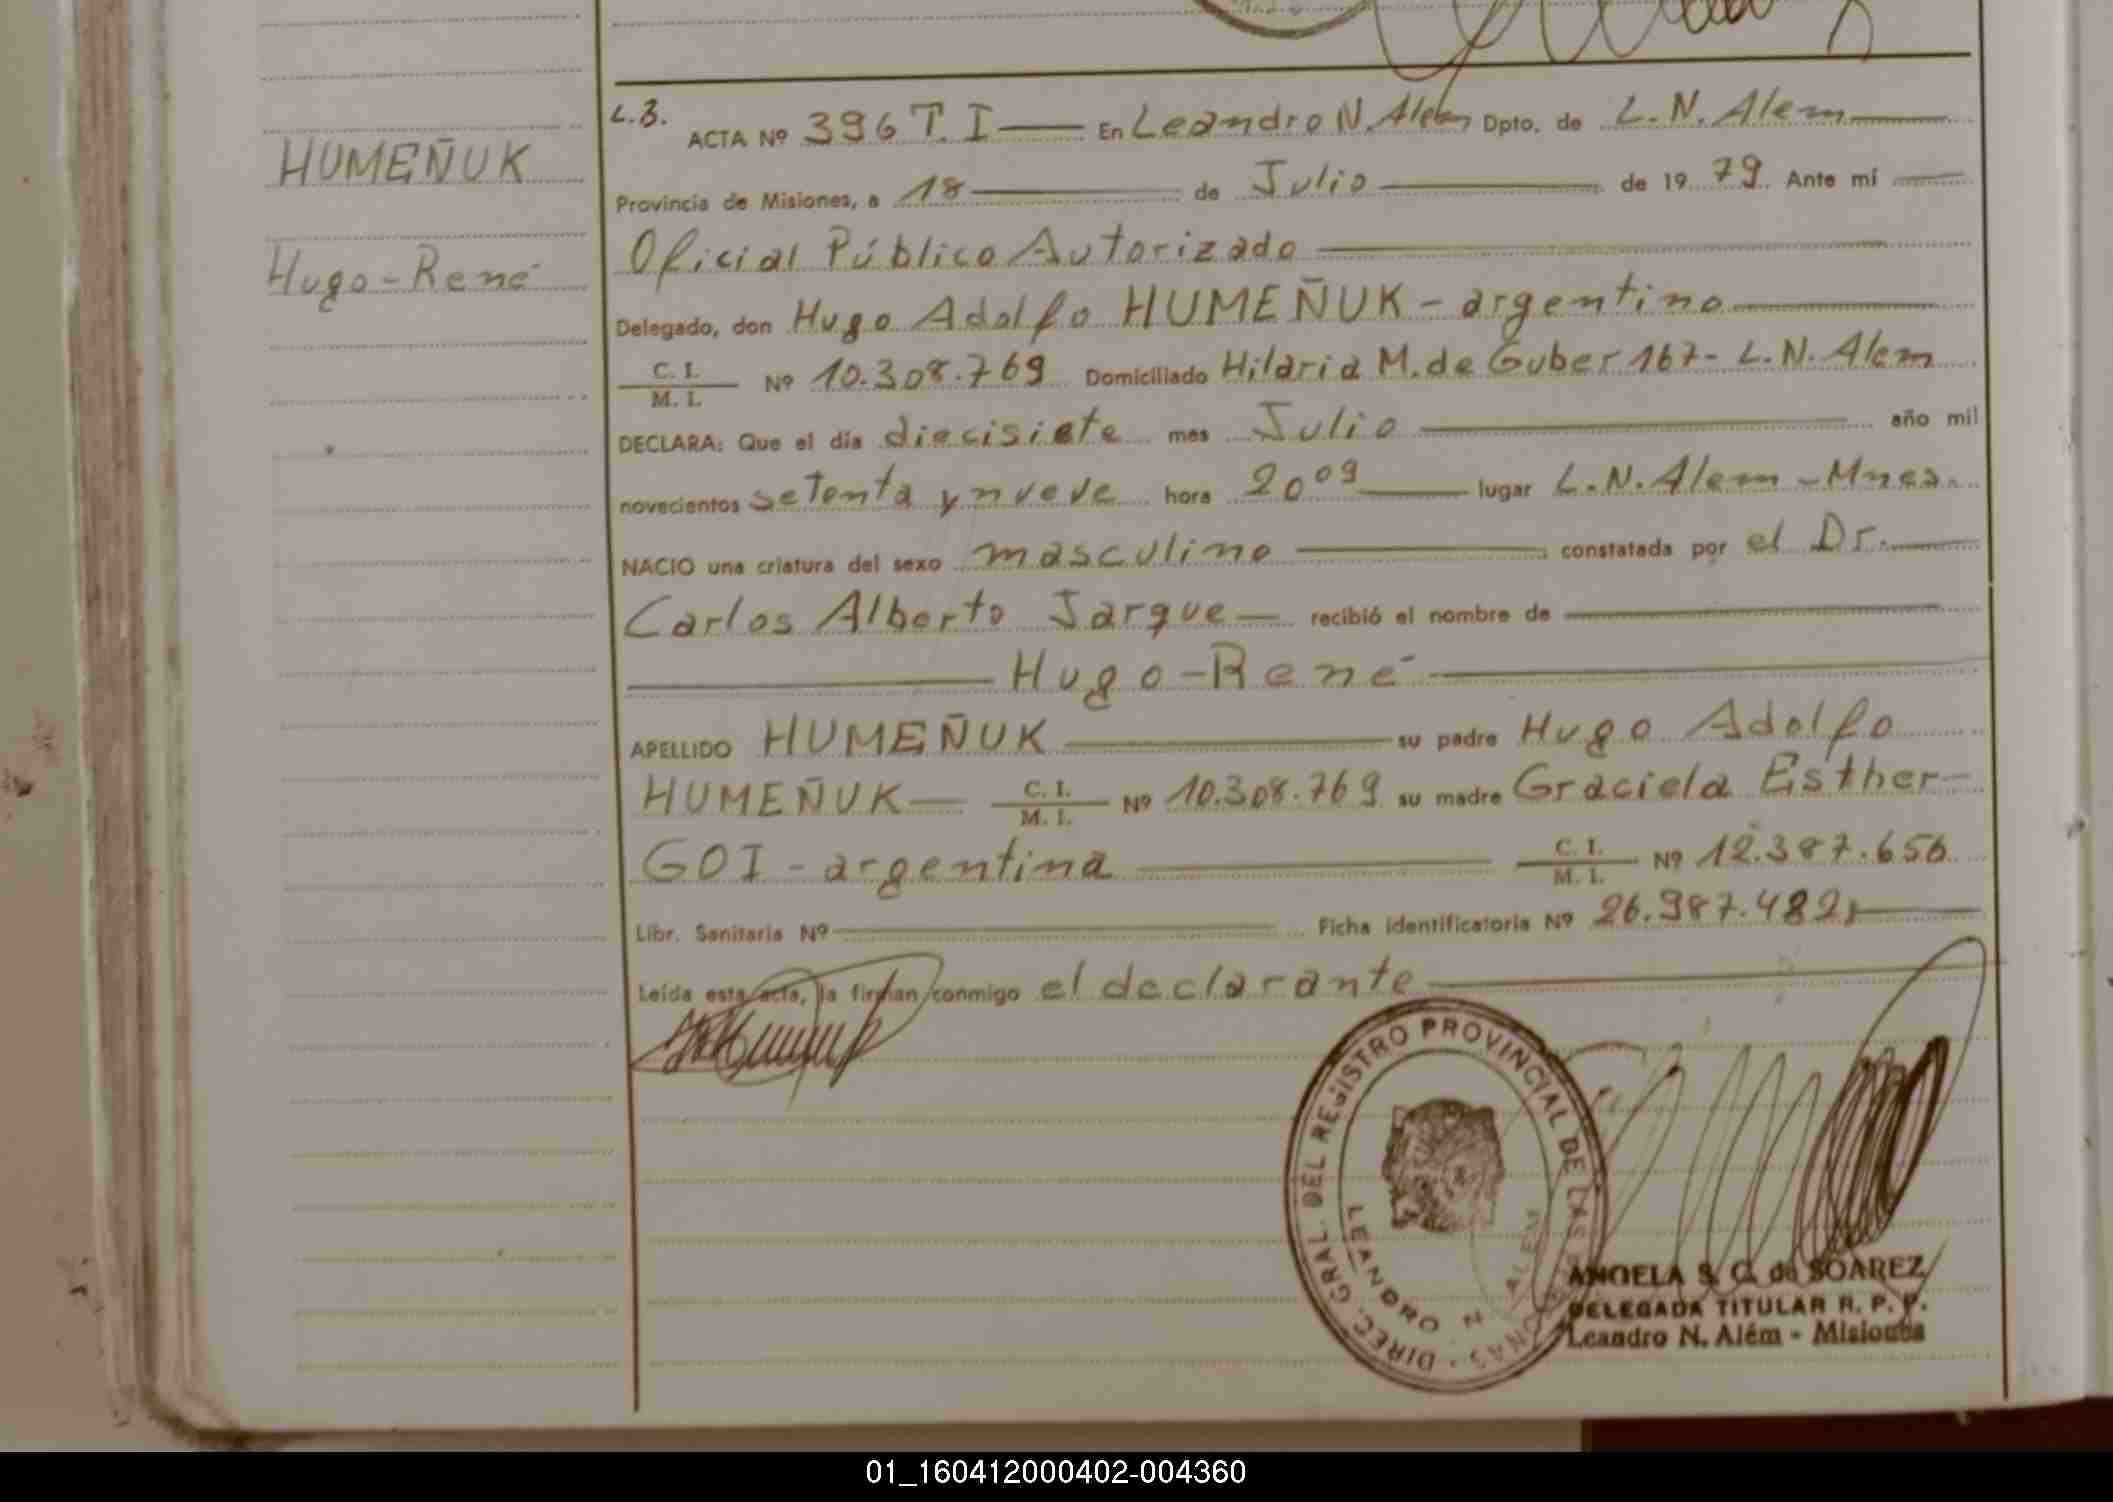 HUMEÑUK
Hugo-René
L.B.
ACTA Nº 396 T. I — En Leandro N. Alem Dpto. de L. N. Alem
Provincia de Misiones, a 18 de Julio de 1979. Ante mí
Oficial Público Autorizado
Delegado, don Hugo Adolfo HUMEÑUK - argentino
C. I.
M. I. Nº 10.308.769 Domiciliado Hilaria M. de Guber 167- L. N. Alem
DECLARA: Que el día diecisiete mes Julio año mil
novecientos setenta y nueve hora 20 09 lugar L. N. Alem - Mnes.
NACIO una criatura del sexo masculino constatada por el Dr.
Carlos Alberto Jarque — recibió el nombre de
Hugo-René
APELLIDO HUMEÑUK su padre Hugo Adolfo
HUMEÑUK — C. I.
M. I. Nº 10.308.769 su madre Graciela Esther-
GOI - argentina C. I.
M. I. Nº 12.387.656
Libr. Sanitaria Nº Ficha identificatoria Nº 26.987.482,
Leída esta acta, la firman conmigo el declarante
DIREC. GRAL. DEL REGISTRO PROVINCIAL DE LAS PERSONAS -
LEANDRO N. ALEM
ANGELA S. C. de SOAREZ
DELEGADA TITULAR R. P. P.
Leandro N. Além - Misiones
01_160412000402-004360